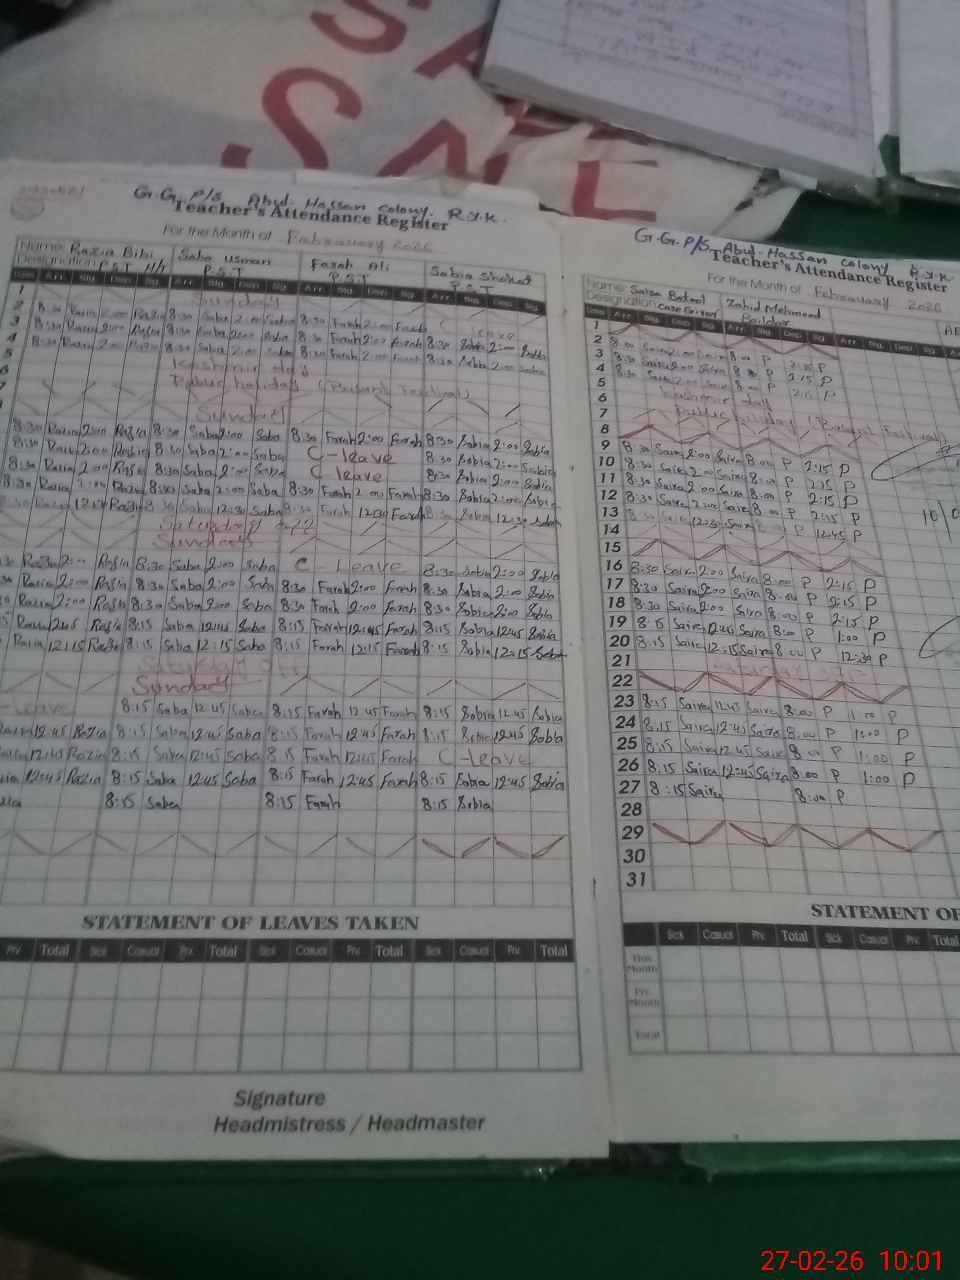 SALE
SALE
G.G. P/S Abul-Hassan Colony. R.Y.K.
Teacher's Attendance Register
For the Month of February 2026
Name: Razia Bibi Saba Usman Farah Ali Sobia Shokat
Designation: P.S.T H/T P.S.T P.S.T P.S.T
Date Arr. Sig. Dep. Sig. Arr. Sig. Dep. Sig. Arr. Sig. Dep. Sig. Arr. Sig. Dep. Sig.
1 Sunday
2 8:30 Razia 2:00 Razia 8:30 Saba 2:00 Saba 8:30 Farah 2:00 Farah C- leave
3 8:30 Razia 2:00 Razia 8:30 Saba 2:00 Saba 8:30 Farah 2:00 Farah 8:30 Sobia 2:00 Sobia
4 8:30 Razia 2:00 Razia 8:30 Saba 2:00 Saba 8:30 Farah 2:00 Farah 8:30 Sobia 2:00 Sobia
5 Kashmir day
6 Public holiday (Basant Festival)
7
Sunday
8:30 Razia 2:00 Razia 8:30 Saba 2:00 Saba 8:30 Farah 2:00 Farah 8:30 Sobia 2:00 Sobia
8:30 Razia 2:00 Razia 8:30 Saba 2:00 Saba C-leave 8:30 Sobia 2:00 Sobia
8:30 Razia 2:00 Razia 8:30 Saba 2:00 Saba C leave 8:30 Sobia 2:00 Sobia
8:30 Razia 2:00 Razia 8:30 Saba 2:00 Saba 8:30 Farah 2:00 Farah 8:30 Sobia 2:00 Sobia
8:30 Razia 12:30 Razia 8:30 Saba 12:30 Saba 8:30 Farah 12:30 Farah 8:30 Sobia 12:30 Sobia
Saturday
Sunday
Razia 2:00 Razia 8:30 Saba 2:00 Saba C- Leave 8:30 Sobia 2:00 Sobia
Razia 2:00 Razia 8:30 Saba 2:00 Saba 8:30 Farah 2:00 Farah 8:30 Sobia 2:00 Sobia
Razia 2:00 Razia 8:30 Saba 2:00 Saba 8:30 Farah 2:00 Farah 8:30 Sobia 2:00 Sobia
Razia 12:45 Razia 8:15 Saba 12:45 Saba 8:15 Farah 12:45 Farah 8:15 Sobia 12:45 Sobia
Razia 12:15 Razia 8:15 Saba 12:15 Saba 8:15 Farah 12:15 Farah 8:15 Sobia 12:15 Sobia
Saturday off
Sunday
-leave 8:15 Saba 12:45 Saba 8:15 Farah 12:45 Farah 8:15 Sobia 12:45 Sobia
12:45 Razia 8:15 Saba 12:45 Saba 8:15 Farah 12:45 Farah 8:15 Sobia 12:45 Sobia
12:45 Razia 8:15 Saba 12:45 Saba 8:15 Farah 12:45 Farah C-leave
12:45 Razia 8:15 Saba 12:45 Saba 8:15 Farah 12:45 Farah 8:15 Sobia 12:45 Sobia
8:15 Saba 8:15 Farah 8:15 Sobia
STATEMENT OF LEAVES TAKEN
Prv. Total Sick Casual Prv. Total Sick Casual Prv. Total Sick Casual Prv. Total
Signature
Headmistress / Headmaster
G.G. P/S Abul-Hassan Colony R.Y.K.
Teacher's Attendance Register
For the Month of February 2026
Name: Saira Batool Zahid Mehmood
Designation:
Date Arr. Sig. Dep. Sig. Arr. Sig. Dep. Sig. Arr. Sig. Dep. Sig.
1
2 8:30 Saira 2:00 Saira 8:00 P 2:15 P
3 8:30 Saira 2:00 Saira 8:00 P 2:15 P
4 8:30 Saira 2:00 Saira 8:00 P 2:15 P
5 Kashmir day
6 Public holiday (Basant Festival)
7
8
9 8:30 Saira 2:00 Saira 8:00 P 2:15 P
10 8:30 Saira 2:00 Saira 8:00 P 2:15 P
11 8:30 Saira 2:00 Saira 8:00 P 2:15 P
12 8:30 Saira 2:00 Saira 8:00 P 2:15 P
13 8:30 Saira 12:30 Saira 8:00 P 12:45 P
14
15
16 8:30 Saira 2:00 Saira 8:00 P 2:15 P
17 8:30 Saira 2:00 Saira 8:00 P 2:15 P
18 8:30 Saira 2:00 Saira 8:00 P 2:15 P
19 8:15 Saira 12:45 Saira 8:00 P 1:00 P
20 8:15 Saira 12:15 Saira 8:00 P 12:30 P
21 Saturday off
22
23 8:15 Saira 12:45 Saira 8:00 P 1:00 P
24 8:15 Saira 12:45 Saira 8:00 P 1:00 P
25 8:15 Saira 12:45 Saira 8:00 P 1:00 P
26 8:15 Saira 12:45 Saira 8:00 P 1:00 P
27 8:15 Saira 8:00 P
28
29
30
31
STATEMENT OF
Sick Casual Prv. Total Sick Casual Prv. Total
This Month
Prv. Month
Total
27-02-26 10:01